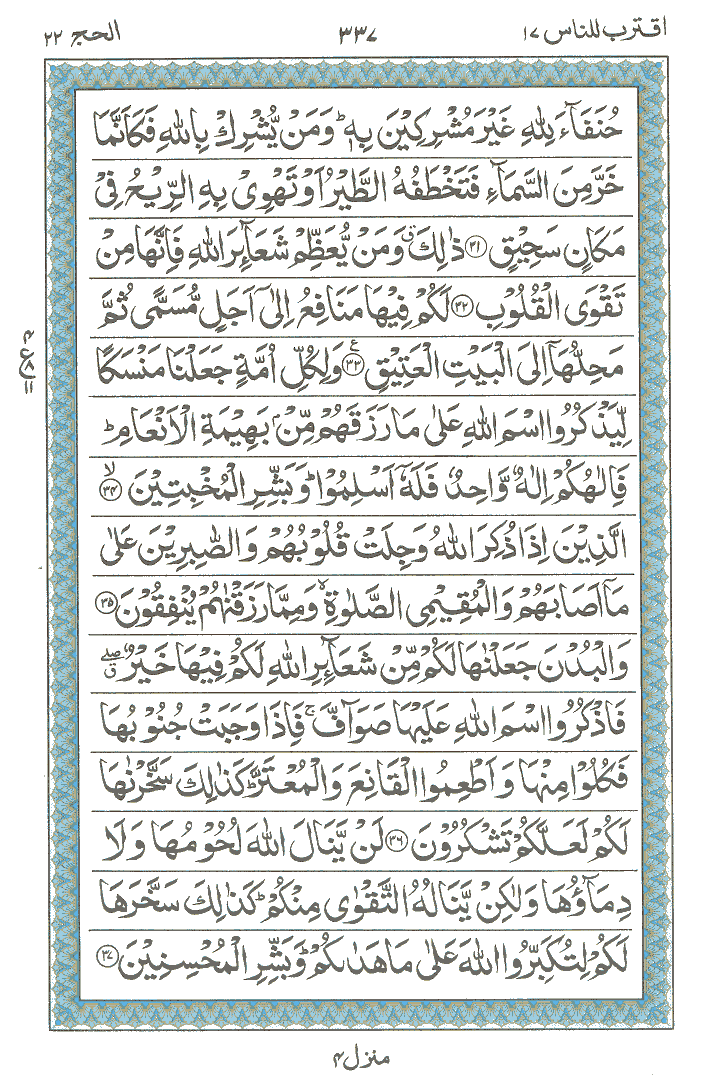 اقترب للناس ١٧
٣٣٧
الحج ٢٢
حُنَفَآءَ لِلّٰهِ غَيْرَ مُشْرِكِيْنَ بِهٖ ؕ وَمَنْ يُّشْرِكْ بِاللّٰهِ فَكَاَنَّمَا
خَرَّ مِنَ السَّمَآءِ فَتَخْطَفُهُ الطَّيْرُ اَوْ تَهْوِىْ بِهِ الرِّيْحُ فِىْ
مَكَانٍ سَحِيْقٍ ﴿۳۱﴾ ذٰلِكَ ۗ وَمَنْ يُّعَظِّمْ شَعَآئِرَ اللّٰهِ فَاِنَّهَا مِنْ
تَقْوَى الْقُلُوْبِ ﴿۳۲﴾ لَكُمْ فِيْهَا مَنَافِعُ اِلٰٓى اَجَلٍ مُّسَمًّى ثُمَّ
مَحِلُّهَاۤ اِلَى الْبَيْتِ الْعَتِيْقِ ﴿۳۳﴾ ع وَلِكُلِّ اُمَّةٍ جَعَلْنَا مَنْسَكًا
لِّيَذْكُرُوا اسْمَ اللّٰهِ عَلٰى مَا رَزَقَهُمْ مِّنْۢ بَهِيْمَةِ الْاَنْعَامِ ؕ
فَاِلٰهُكُمْ اِلٰهٌ وَّاحِدٌ فَلَهٗۤ اَسْلِمُوْا ؕ وَبَشِّرِ الْمُخْبِتِيْنَ ﴿۳۴﴾ ۙ
الَّذِيْنَ اِذَا ذُكِرَ اللّٰهُ وَجِلَتْ قُلُوْبُهُمْ وَالصّٰبِرِيْنَ عَلٰى
مَاۤ اَصَابَهُمْ وَالْمُقِيْمِى الصَّلٰوةِ ۙ وَمِمَّا رَزَقْنٰهُمْ يُنْفِقُوْنَ ﴿۳۵﴾
وَالْبُدْنَ جَعَلْنٰهَا لَكُمْ مِّنْ شَعَآئِرِ اللّٰهِ لَكُمْ فِيْهَا خَيْرٌ ۖ ق
فَاذْكُرُوا اسْمَ اللّٰهِ عَلَيْهَا صَوَآفَّ ۚ فَاِذَا وَجَبَتْ جُنُوْبُهَا
فَكُلُوْا مِنْهَا وَاَطْعِمُوا الْقَانِعَ وَالْمُعْتَرَّ ؕ كَذٰلِكَ سَخَّرْنٰهَا
لَكُمْ لَعَلَّكُمْ تَشْكُرُوْنَ ﴿۳۶﴾ لَنْ يَّنَالَ اللّٰهَ لُحُوْمُهَا وَلَا
دِمَآؤُهَا وَلٰكِنْ يَّنَالُهُ التَّقْوٰى مِنْكُمْ ؕ كَذٰلِكَ سَخَّرَهَا
لَكُمْ لِتُكَبِّرُوا اللّٰهَ عَلٰى مَا هَدٰٮكُمْ ؕ وَبَشِّرِ الْمُحْسِنِيْنَ ﴿۳۷﴾
منزل ۴